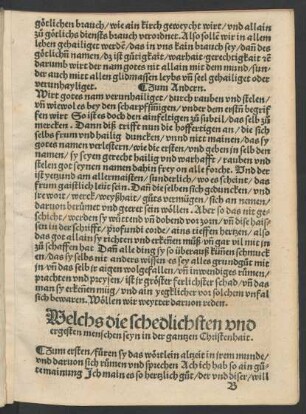 götlichen brauch/ wie ain kirch geweycht wirt/ vnd allain
zů götlichs diensts brauch verordnet. Also sollẽ wir in allem
leben gehailiget werdẽ/ das in vns kain brauch sey/ dañ des
götlichñ namen/ dz ist gütigkait/ warhait gerechtigkait ꝛc
darumb wirt der nam gotes nit allain mit dem mund/ sun-
der auch mitt allen glidmassen leybs vñ seel gehailiget oder
verunhayliget. Zum Andern.
Wirt gotes nam verunhailiget/ durch rauben vnd stelen/
vñ wiewol es bey den scharpfsinnigen/ vnder dem erstẽ begriff
fen wirt So ist es doch den ainfeltigen zů subteil/ das selb zů
mercken. Dann diß trifft nun die hoffertigen an/ die sich
selbs frum vnd hailig duncken/ vnnd nitt mainen/ das sy
gotes namen verlestern/ wie die ersten/ vnd geben in selb den
namen/ sy seyen gerecht hailig vnd warhafft/ rauben vnd
stelen got seynen namen dahin frey on alle forcht. Vnd der
ist yetzund am allermaisten/ sunderlich/ wo es scheint/ das
frum gaistlich leüt sein. Dañ die selben sich gedüncken/ vnd
ire wort/ werck/ weyßhait/ gůts vermügen/ sich an nemen/
darvon berümet vnd geeret sein wöllen. Aber so das nit ge-
schicht/ werden sy wüttend vñ dobend vor zorn/
in der schrifft/ profundi corde/ ains tieffen hertzen/ also
das got allain sy richten vnd erkennen můß vñ gar vil mit in
zů schaffen hat Dañ alle ding sy so überauß künnen schmuck
en/ das sy selbs nit anders wissen es sey alles grundgůt mit
in vñ das selb ir aigen wolgefallen/ vñ inwendiges rümen/
prachten vnd preysen/ ist ir gröster ferlichster schad/ vñ das
man sy erkennen müg/ vnd ain yegklicher vor solchem vnfal
sich bewaren. Wöllen wir weytter darvon reden.
Welchs die schedlichsten vnd
ergesten menschen seyn in der gantzen Christenhait.
Zum ersten/ füren sy das wörtlein altzeit in irem munde/
vnd darvon sich rümen vnd sprechen Ach ich hab so ain gů-
te mainung Ich main es so hertzlich gůt/ der vnd diser/ will
B